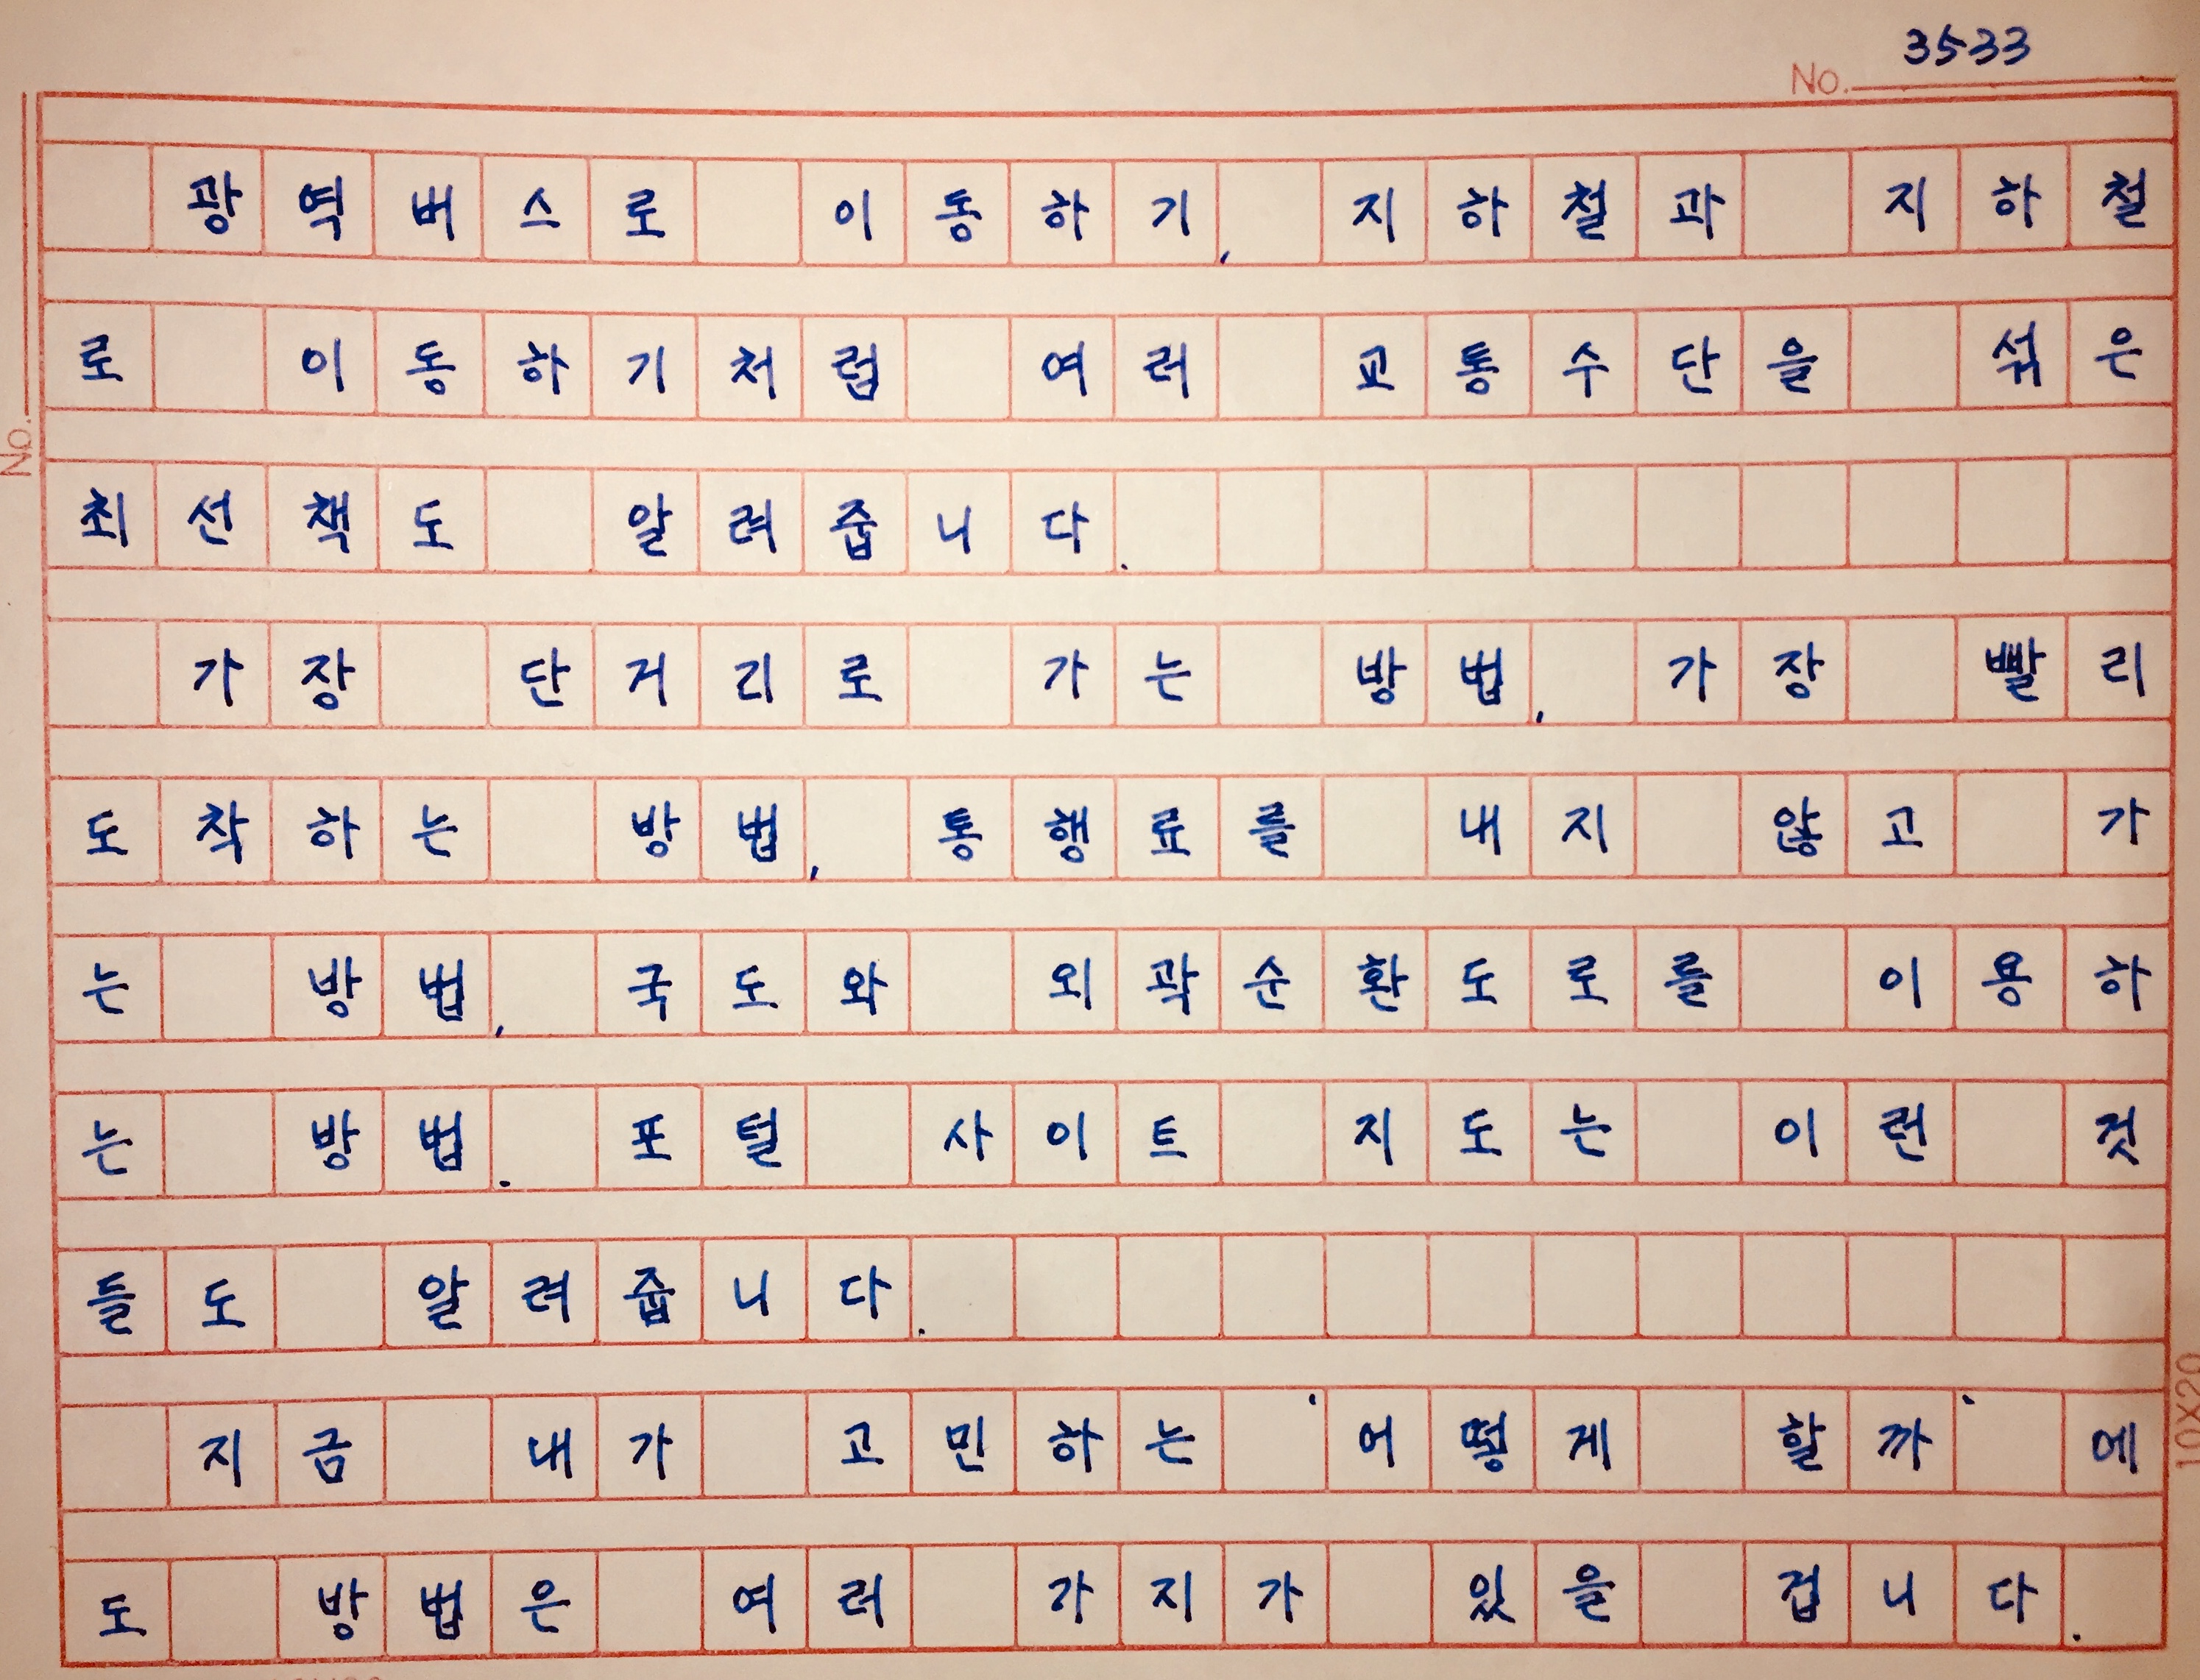 No. 3533
광역버스로 이동하기, 지하철과 지하철
로 이동하기처럼 여러 교통수단을 섞은
최선책도 알려줍니다.
가장 단거리로 가는 방법, 가장 빨리
도착하는 방법, 통행료를 내지 않고 가
는 방법, 국도와 외곽순환도로를 이용하
는 방법. 포털 사이트 지도는 이런 것
들도 알려줍니다.
지금 내가 고민하는 '어떻게 할까'에
도 방법은 여러 가지가 있을 겁니다.
No.
10X20